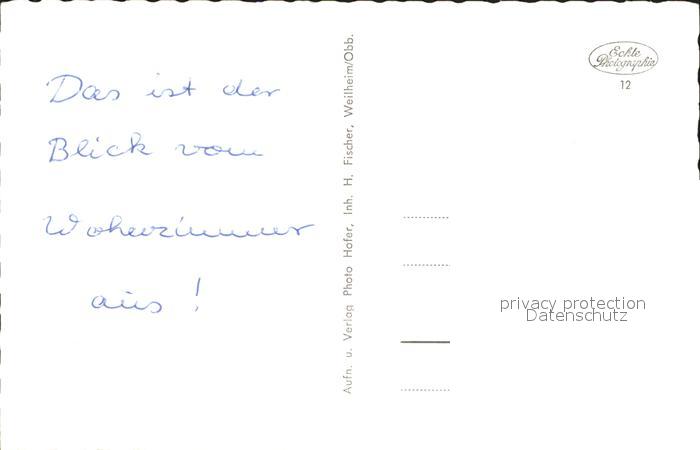 Das ist der
Blick vom
Wohnzimmer
aus !
Aufn. u. Verlag Photo Hofer, Inh. H. Fischer, Weilheim/Obb.
Echte
Photographie
12
privacy protection
Datenschutz